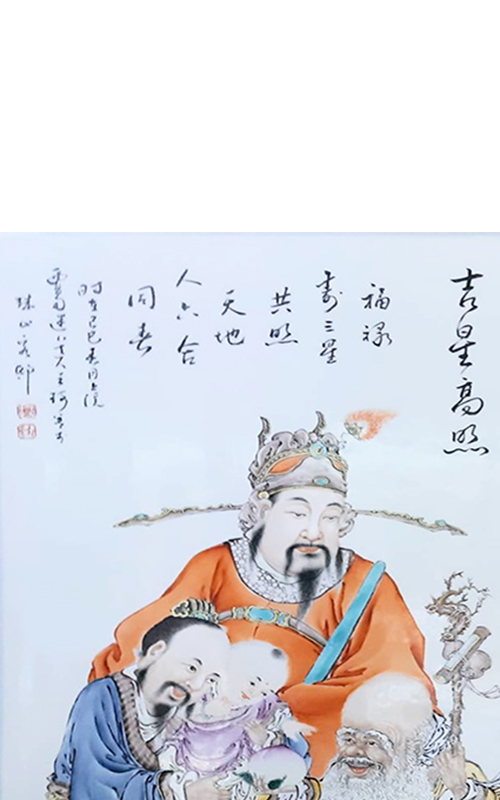 吉星高照
福禄
寿三星
共照
天地
人六合
同春
时在己巳春月上浣
珠山客邸